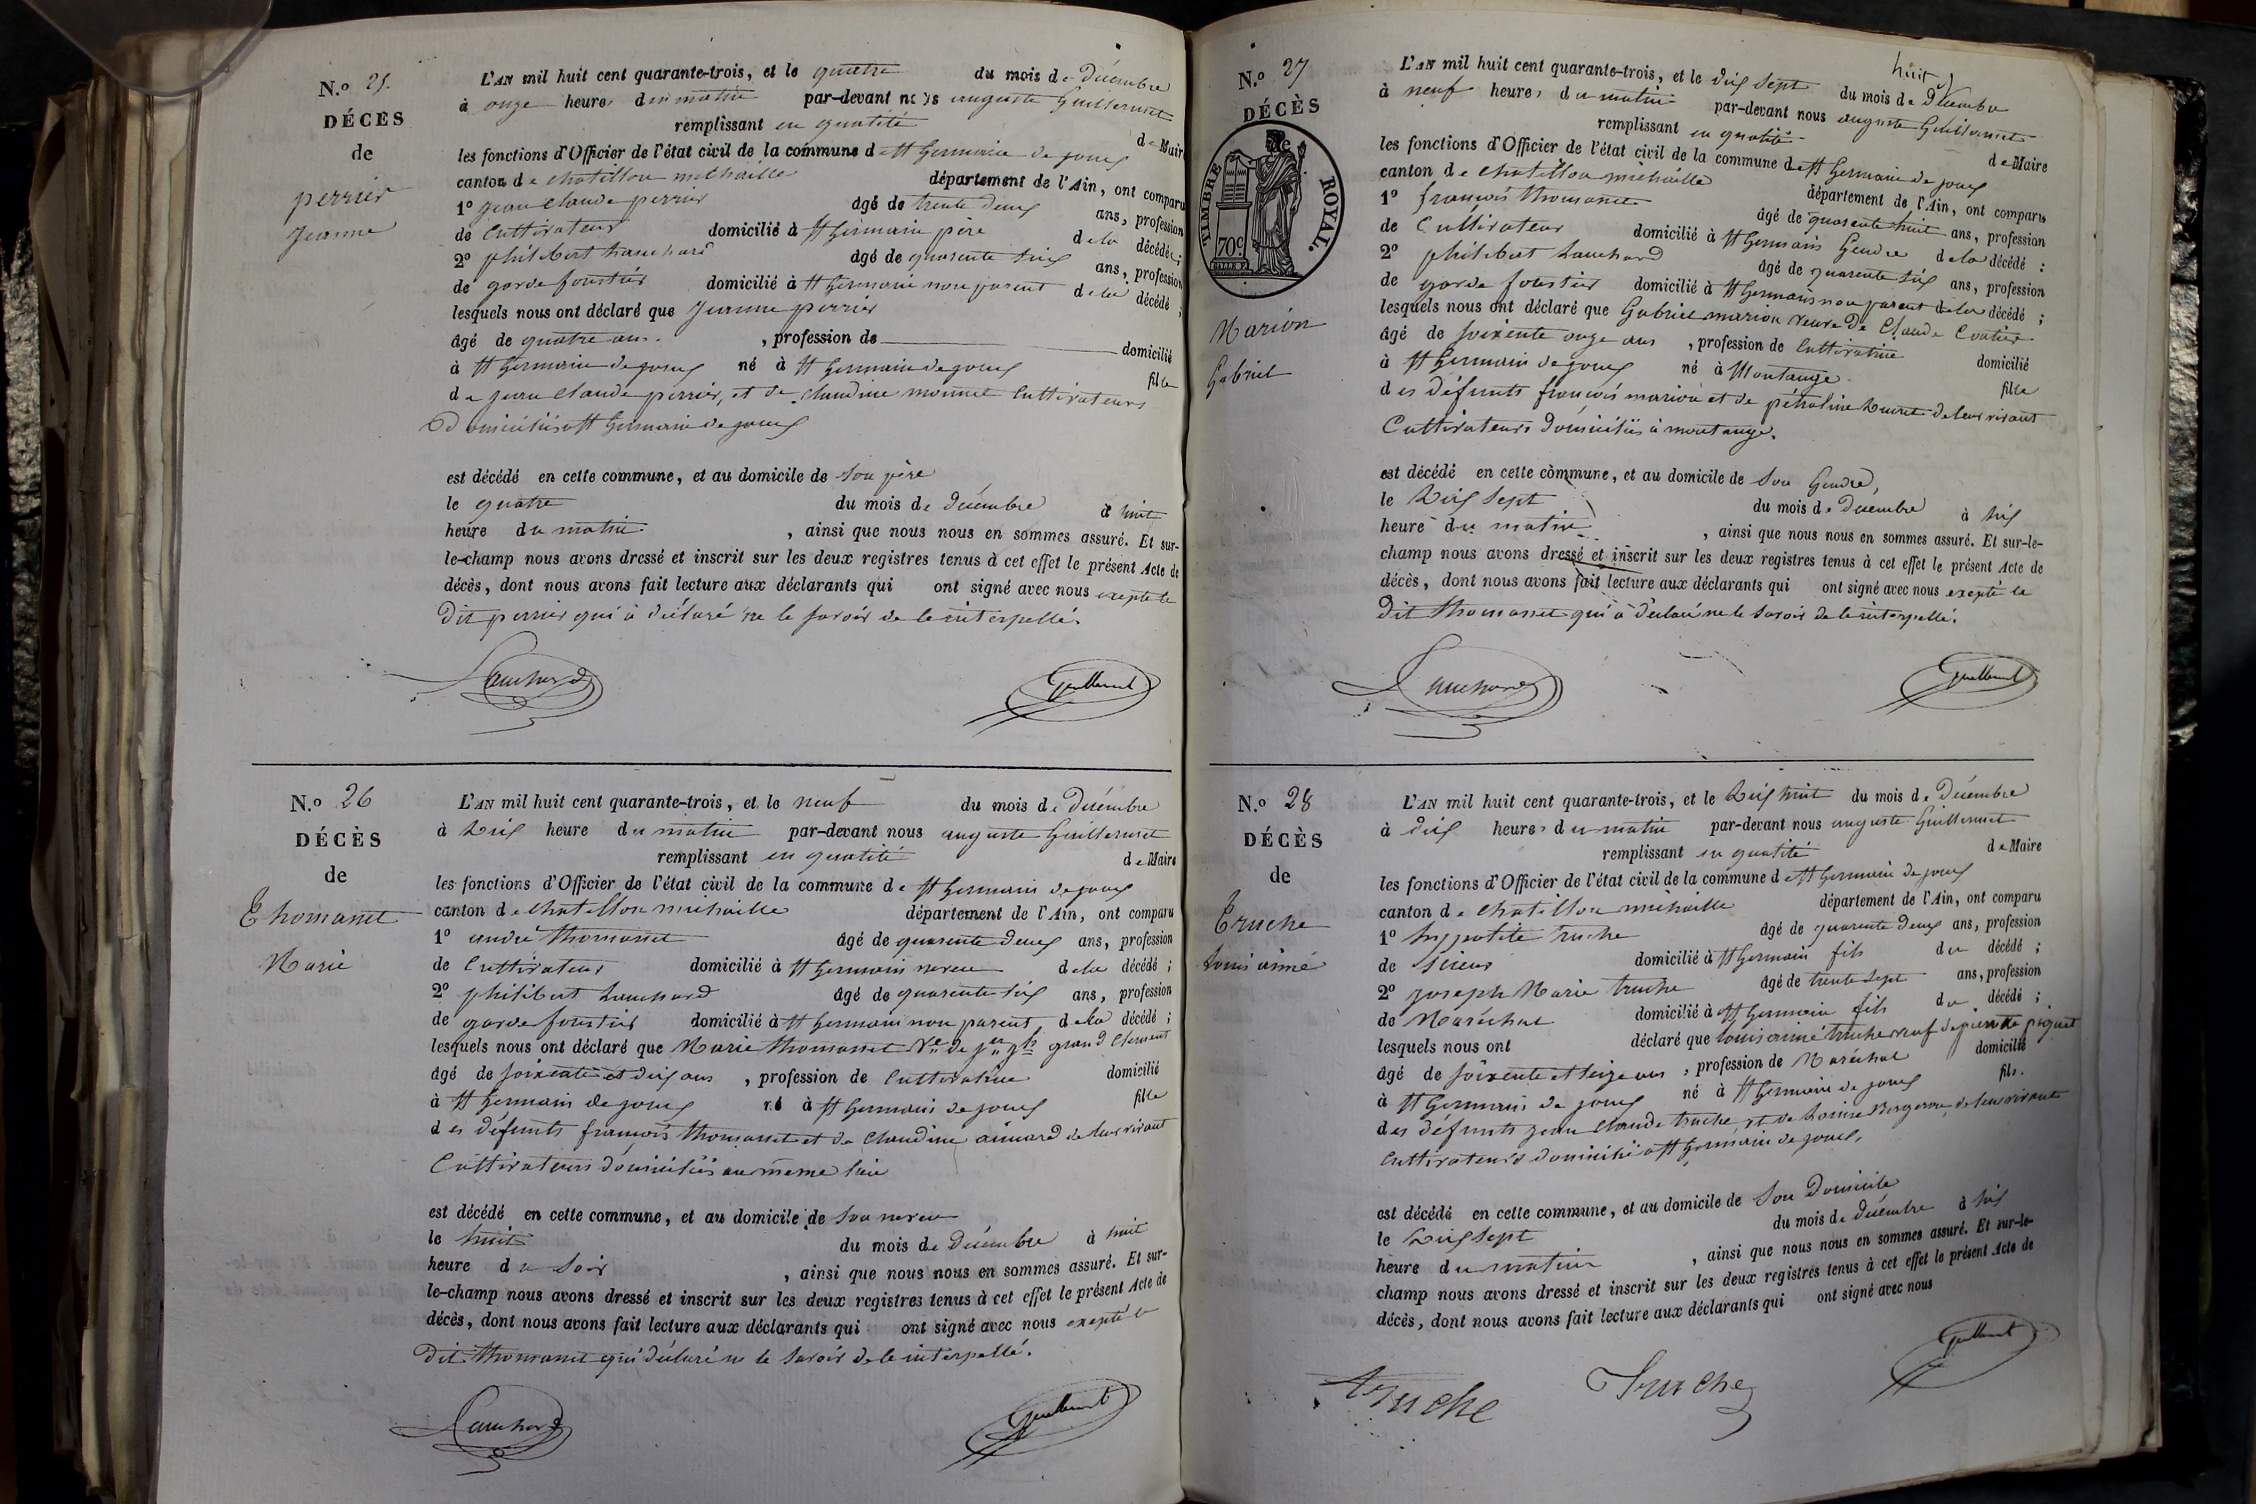 N.o 25.
DÉCÈS
de
perrier
Jeanne
L'AN mil huit cent quarante-trois, et le quatre du mois de Décembre
à onze heures du matin par-devant nous auguste Guillermet
remplissant en qualité de Maire
les fonctions d'Officier de l'état civil de la commune de St Germain de joux
canton de chatillon michaille département de l'Ain, ont comparu
1º jean claude perrier âgé de trente deux ans, profession
de Cultivateur domicilié à St Germain père de la décédée;
2º philibert Lanchard âgé de quarente six ans, profession
de garde forestier domicilié à St Germain non parent de la décédé;
lesquels nous ont déclaré que Jeanne perrier
âgé de quatre ans. , profession de domicilié
à St Germain de joux né à St Germain de joux fille
de jean claude perrier, et de claudine monnet Cultivateurs
Domiciliés à St Germain de joux
est décédé en cette commune, et au domicile de son père
le quatre du mois de Décembre à huit
heure du matin , ainsi que nous nous en sommes assuré. Et sur-
le-champ nous avons dressé et inscrit sur les deux registres tenus à cet effet le présent Acte de
décès, dont nous avons fait lecture aux déclarants qui ont signé avec nous excepté le
Dit perrier qui à déclaré ne le savoir de ce interpellé.
Lanchard Guillermet
N.o 26
DÉCÈS
de
Thomasset
Marie
L'AN mil huit cent quarante-trois, et le neuf du mois de Décembre
à Dix heure du matin par-devant nous auguste Guillermet
remplissant en qualité de Maire
les fonctions d'Officier de l'état civil de la commune de St Germain de joux
canton de chatillon michaille département de l'Ain, ont comparu
1º andré thomasset âgé de quarente deux ans, profession
de Cultivateur domicilié à St Germain neveu de la décédé;
2º philibert Lanchard âgé de quarente six ans, profession
de garde forestier domicilié à St Germain non parent, de la décédé;
lesquels nous ont déclaré que Marie thomasset Ve de grand Clement
âgé de soixente et dix ans , profession de Cultivatrice domicilié
à St Germain de joux né à St Germain de joux fille
des défunts françois thomasset et de Claudine aimard de leur vivant
Cultivateurs domiciliés au même lieu
est décédé en cette commune, et au domicile de son neveu
le huit du mois de Décembre à huit
heure du soir , ainsi que nous nous en sommes assuré. Et sur-
le-champ nous avons dressé et inscrit sur les deux registres tenus à cet effet le présent Acte de
décès, dont nous avons fait lecture aux déclarants qui ont signé avec nous excepté le
Dit thomasset qui déclaré ne le savoir de ce interpellé.
Lanchard Guillermet
N.o 27
DÉCÈS
de
TIMBRE ROYAL.
70c
Marion
Gabriel
huit
L'AN mil huit cent quarante-trois, et le dix sept du mois de Décembre
à neuf heures du matin par-devant nous auguste Guillermet
remplissant en qualité de Maire
les fonctions d'Officier de l'état civil de la commune de St Germain de joux
canton de chatillon michaille département de l'Ain, ont comparu
1º françois thomasset âgé de quarente huit ans, profession
de Cultivateur domicilié à St Germain Gendre de la décédé:
2º philibert Lanchard âgé de quarente six ans, profession
de garde forestier domicilié à St Germain non parent de la décédé;
lesquels nous ont déclaré que Gabriel marion veuve De Claude
âgé de soixente onze ans , profession de Cultivatrice domicilié
à St Germain de joux né à Montange fille
des défunts françois marion et de de leur vivant
Cultivateurs domiciliés à montange.
est décédé en cette commune, et au domicile de son Gendre,
le Dix sept du mois de Décembre à six
heure du matin , ainsi que nous nous en sommes assuré. Et sur-le-
champ nous avons dressé et inscrit sur les deux registres tenus à cet effet le présent Acte de
décès, dont nous avons fait lecture aux déclarants qui ont signé avec nous excepté le
Dit thomasset qui à déclaré ne le savoir de ce interpellé.
Lanchard Guillermet
N.o 28
DÉCÈS
de
Truche
Louis aimé
L'AN mil huit cent quarante-trois, et le Dix huit du mois de Décembre
à dix heures du matin par-devant nous auguste Guillermet
remplissant en qualité de Maire
les fonctions d'Officier de l'état civil de la commune de St Germain de joux
canton de chatillon michaille département de l'Ain, ont comparu
1º hyppolite truche âgé de quarente deux ans, profession
de domicilié à St Germain fils du décédé;
2º joseph Marie truche âgé de trente sept ans, profession
de Maréchal domicilié à St Germain fils du décédé;
lesquels nous ont déclaré que Louis aimé truche veuf de pierrette
âgé de soixente et seize ans , profession de Maréchal domicilié
à St Germain de joux né à St Germain de joux fils.
des défunts jean claude truche, et de Louise de leur vivant
Cultivateurs domiciliés à St Germain de joux.
est décédé en cette commune, et au domicile de son Domicile
le Dix sept du mois de Décembre à six
heure du matin , ainsi que nous nous en sommes assuré. Et sur-le-
champ nous avons dressé et inscrit sur les deux registres tenus à cet effet le présent Acte de
décès, dont nous avons fait lecture aux déclarants qui ont signé avec nous
truche Truche Guillermet